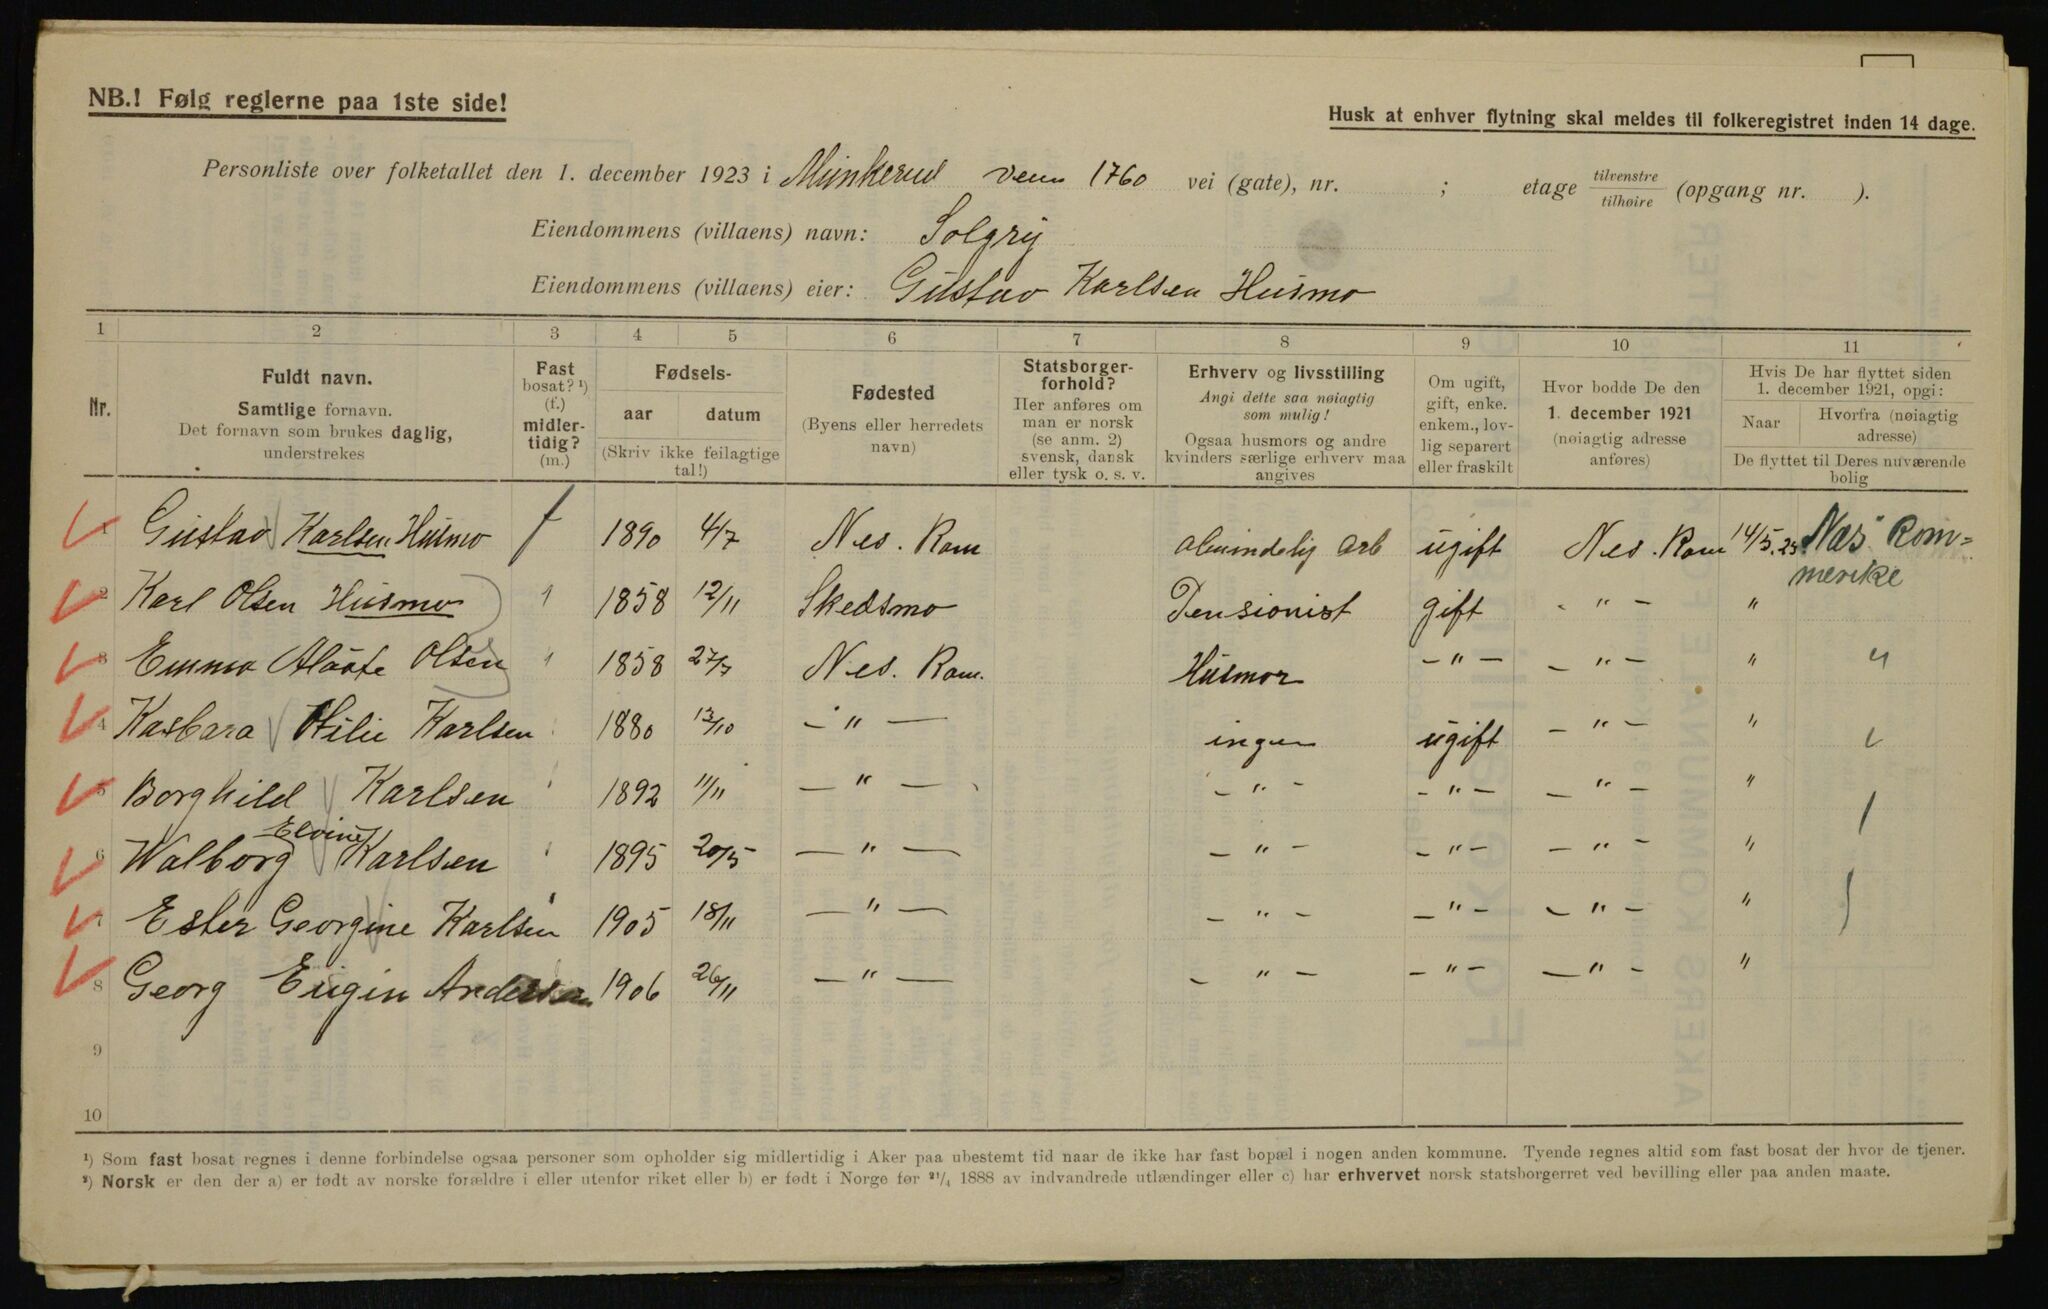 NB.! Følg reglerne paa 1ste side!
Husk at enhver flytning skal meldes til folkeregistret inden 14 dage.
Personliste over folketallet den 1. december 1923 i Munkerud veien 1760 vei (gate), nr. ; etage tilvenstre/tilhøire (opgang nr. ).
Eiendommens (villaens) navn: Solgry
Eiendommens (villaens) eier: Gustav Karlsen Husmo
1 2 3 4 5 6 7 8 9 10 11
Nr.
Fuldt navn.
Samtlige fornavn.
Det fornavn som brukes daglig,
understrekes
Fast
bosat? ¹)
(f.)
midler-
tidig?
(m.)
Fødsels-
aar datum
(Skriv ikke feilagtige
tal!)
Fødested
(Byens eller herredets
navn)
Statsborger-
forhold?
Her anføres om
man er norsk
(se anm. 2)
svensk, dansk
eller tysk o. s. v.
Erhverv og livsstilling
Angi dette saa nøiagtig
som mulig!
Ogsaa husmors og andre
kvinders særlige erhverv maa
angives
Om ugift,
gift, enke.
enkem., lov-
lig separert
eller fraskilt
Hvor bodde De den
1. december 1921
(nøiagtig adresse
anføres)
Hvis De har flyttet siden
1. december 1921, opgi:
Naar Hvorfra (nøiagtig
adresse)
De flyttet til Deres nuværende
bolig
1 Gustav Karlsen Husmo f 1890 4/7 Nes. Rom almindelig arb ugift Nes. Rom 14/5.23 Nas Rom=
merike
2 Karl Olsen Husmo " 1858 12/11 Skedsmo Pensionist gift - " - "
3 Emma Alāte Olsen " 1858 27/7 Nes. Rom. Husmor - " - - " - " "
4 Kasbara Otilie Karlsen 1880 13/10 - " - ingen ugift - " - "
5 Borghild Karlsen 1892 11/11 - " - - " - - " - - " - "
Elvine
6 Walborg Karlsen 1895 20/5 - " - - " - - " - - " - "
7 Ester Georgine Karlsen 1905 18/11 - " - - " - - " - - " - "
8 Georg Eugin Andersen 1906 26/11 - " - - " - - " - - " - "
9
10
¹) Som fast bosat regnes i denne forbindelse ogsaa personer som opholder sig midlertidig i Aker paa ubestemt tid naar de ikke har fast bopæl i nogen anden kommune. Tyende regnes altid som fast bosat der hvor de tjener.
²) Norsk er den der a) er født av norske forældre i eller utenfor riket eller b) er født i Norge før 21/4 1888 av indvandrede utlændinger eller c) har erhvervet norsk statsborgerret ved bevilling eller paa anden maate.